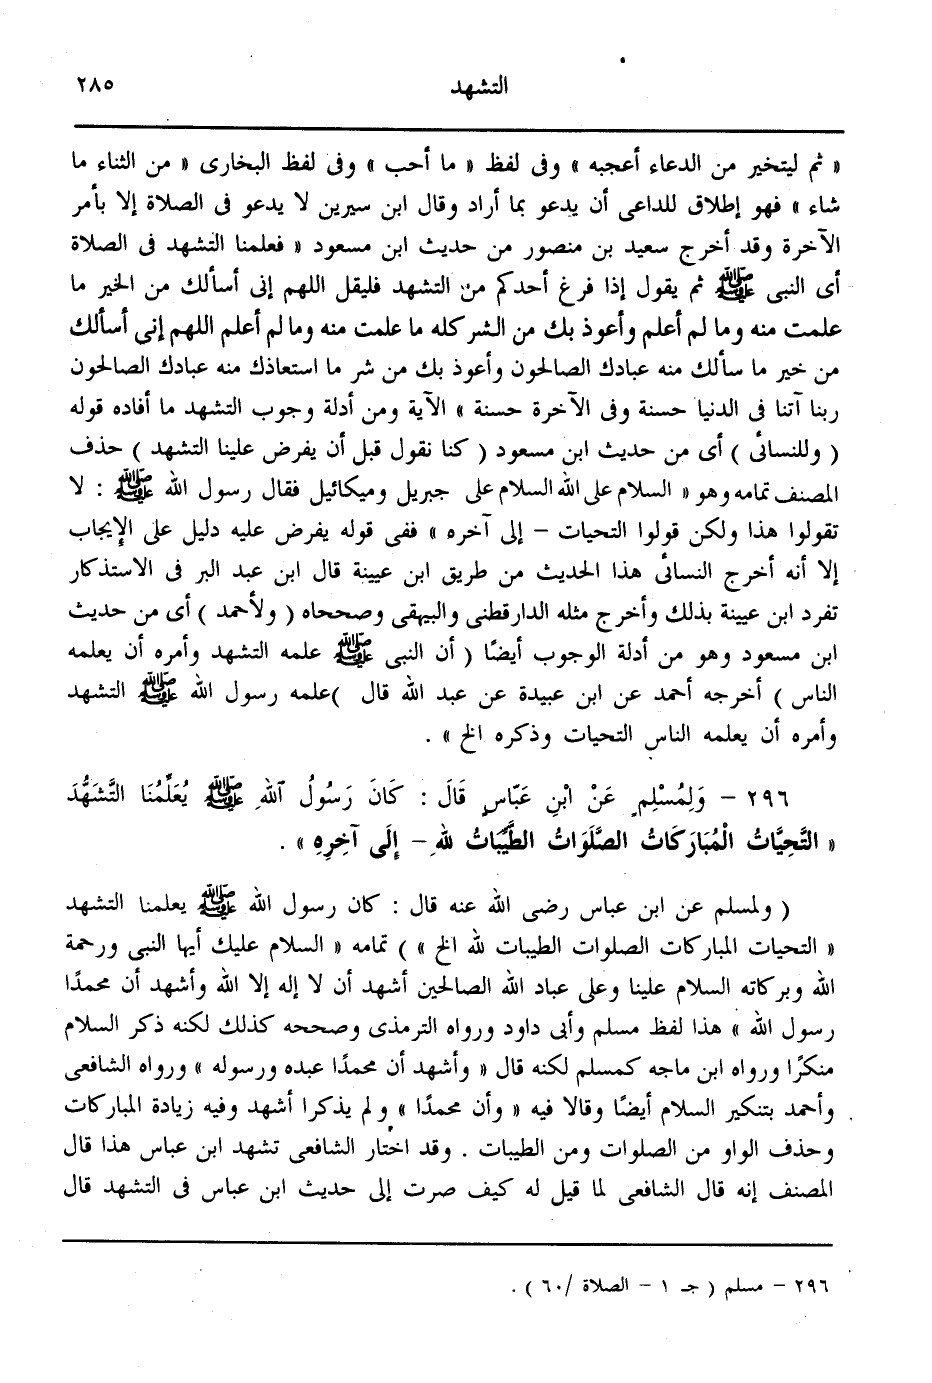 التشهد ٢٨٥
« ثم ليتخير من الدعاء أعجبه » وفى لفظ « ما أحب » وفى لفظ البخارى « من الثناء ما
شاء » فهو إطلاق للداعى أن يدعو بما أراد وقال ابن سيرين لا يدعو فى الصلاة إلا بأمر
الآخرة وقد أخرج سعيد بن منصور من حديث ابن مسعود « فعلمنا التشهد فى الصلاة
أى النبى ﷺ ثم يقول إذا فرغ أحدكم من التشهد فليقل اللهم إنى أسألك من الخير ما
علمت منه وما لم أعلم وأعوذ بك من الشر كله ما علمت منه وما لم أعلم اللهم إنى أسألك
من خير ما سألك منه عبادك الصالحون وأعوذ بك من شر ما استعاذك منه عبادك الصالحون
ربنا آتنا فى الدنيا حسنة وفى الآخرة حسنة » الآية ومن أدلة وجوب التشهد ما أفاده قوله
( وللنسائى ) أى من حديث ابن مسعود ( كنا نقول قبل أن يفرض علينا التشهد ) حذف
المصنف تمامه وهو « السلام على الله السلام على جبريل وميكائيل فقال رسول الله ﷺ : لا
تقولوا هذا ولكن قولوا التحيات – إلى آخره » ففى قوله يفرض عليه دليل على الإيجاب
إلا أنه أخرج النسائى هذا الحديث من طريق ابن عيينة قال ابن عبد البر فى الاستذكار
تفرد ابن عيينة بذلك وأخرج مثله الدارقطنى والبيهقى وصححاه ( ولأحمد ) أى من حديث
ابن مسعود وهو من أدلة الوجوب أيضًا ( أن النبى ﷺ علمه التشهد وأمره أن يعلمه
الناس ) أخرجه أحمد عن ابن عبيدة عن عبد الله قال )علمه رسول الله ﷺ التشهد
وأمره أن يعلمه الناس التحيات وذكره الخ » .
٢٩٦ – وَلِمُسْلِمٍ عَنْ ابْنِ عَبَّاسٍ قَالَ : كَانَ رَسُولُ اللهِ ﷺ يُعَلِّمُنَا التَّشَهُّدَ
« التَّحِيَّاتُ الْمُبَارَكَاتُ الصَّلَوَاتُ الطَّيِّبَاتُ للهِ – إِلَى آخِرِهِ » .
( ولمسلم عن ابن عباس رضى الله عنه قال : كان رسول الله ﷺ يعلمنا التشهد
« التحيات المباركات الصلوات الطيبات لله الخ » ) تمامه « السلام عليك أيها النبى ورحمة
الله وبركاته السلام علينا وعلى عباد الله الصالحين أشهد أن لا إله إلا الله وأشهد أن محمدًا
رسول الله » هذا لفظ مسلم وأبى داود ورواه الترمذى وصححه كذلك لكنه ذكر السلام
منكرًا ورواه ابن ماجه كمسلم لكنه قال « وأشهد أن محمدًا عبده ورسوله » ورواه الشافعى
وأحمد بتنكير السلام أيضًا وقالا فيه « وأن محمدًا » ولم يذكرا أشهد وفيه زيادة المباركات
وحذف الواو من الصلوات ومن الطيبات . وقد اختار الشافعى تشهد ابن عباس هذا قال
المصنف إنه قال الشافعى لما قيل له كيف صرت إلى حديث ابن عباس فى التشهد قال
٢٩٦ – مسلم ( جـ ١ – الصلاة /٦٠ ) .